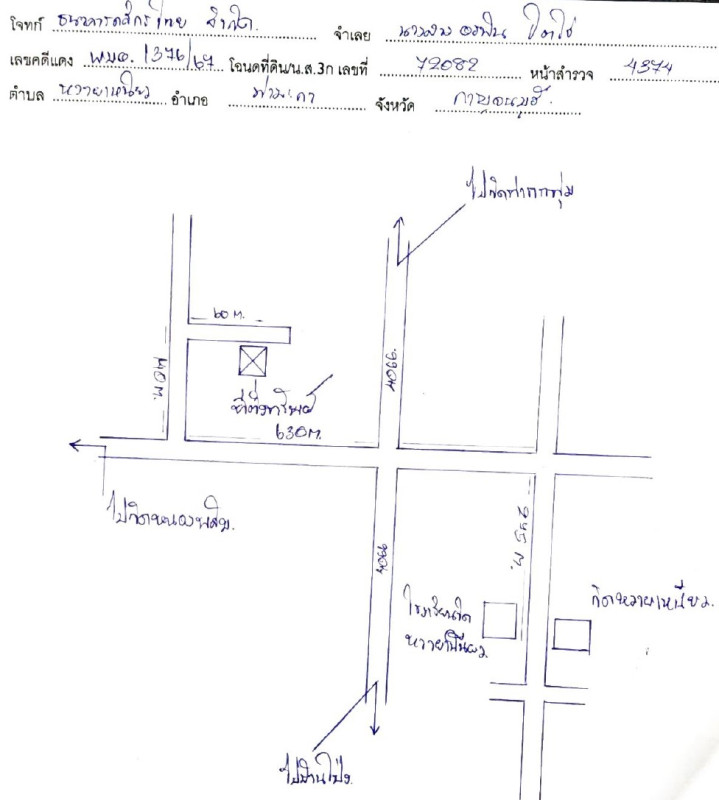 โจทก์ ธนาคารกสิกรไทย จำกัด. จำเลย นางสาว อรพิน
เลขคดีแดง ผบอ. 1376/67 โฉนดที่ดิน/น.ส.3ก เลขที่ 72082 หน้าสำรวจ 4374
ตำบล หวายเหนียว อำเภอ ท่ามะกา จังหวัด กาญจนบุรี.
ไปวัดท่ากกทุ่ม
60 M.
40 M.
4066
ที่ตั้งทรัพย์
630 M.
ไปวัดหนองพลับ.
245 M.
โรงเรียนวัด
หวายเหนียว.
วัดหวายเหนียว.
ไปบ้านโป่ง.